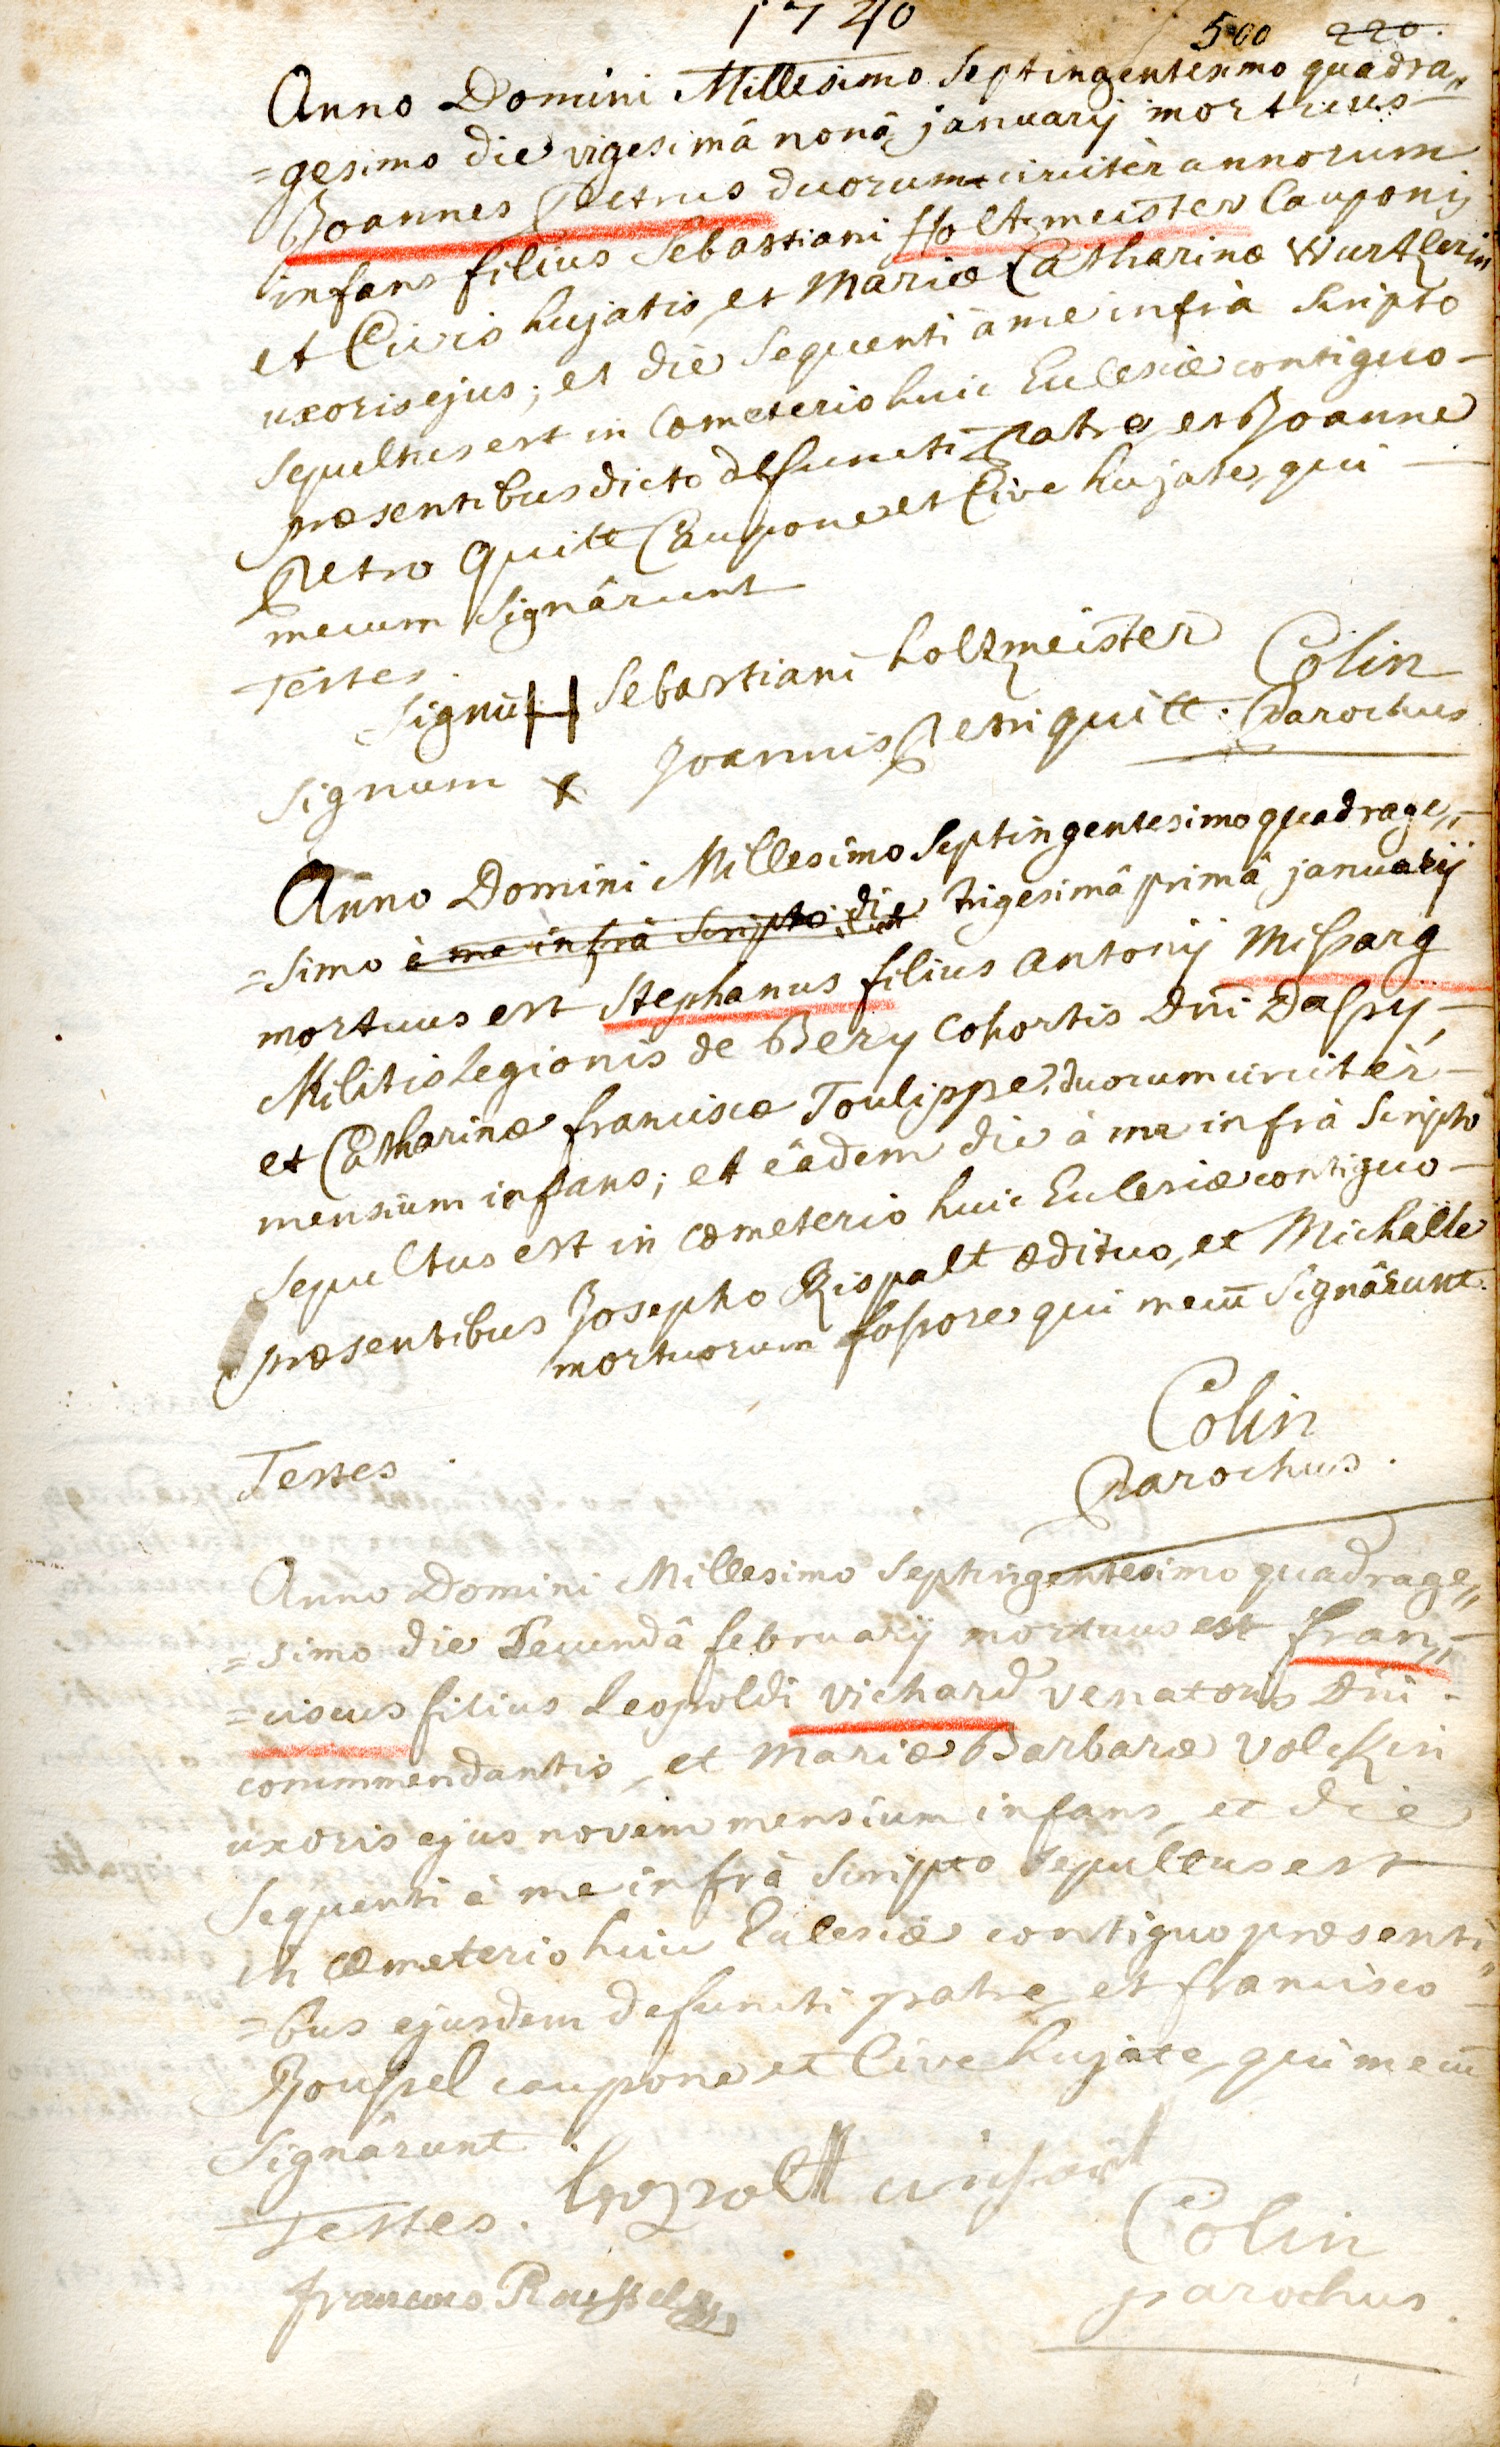 1740
500 220.
Anno Domini Millesimo Septingentesimo quadra„
=gesimo die vigesimâ nonâ januarij mortuus
Joannes Petrus duorum circitèr annorum
infans filius Sebastiani Holtzmeister Cauponis
et Civis hujatis, et Mariæ Catharinæ Wurtzlerin
uxoris ejus; et die Sequenti à me infrà Scripto
Sepultus est in Cœmeterio huic Ecclesiæ contiguo –
præsentibus dicto defuncti Patre, et Joanne
Petro Quitt Caupone et Cive hujate, qui –
mecum Signârunt
Testes.
Signū H Sebastiani holtzmeister Colin
Signum x Joannis Petri quitt. Parochus
Anno Domini Millesimo Septingentesimo quadrage„
=simo à me infrà Scripto die trigesimâ primâ januarij
mortuus est Stephanus filius Antonij Missarg
Militis Legionis de Bery Cohortis Dni Daspy,
et Catharinæ franciscæ Toulippe, duorum circitèr –
mensium infans; et eâdem die à me infrà Scripto
Sepultus est in cœmeterio huic Ecclesiæ contiguo –
præsentibus Josepho Rispalt ædituo, et Michaële
mortuorum fossore qui mecū Signârunt.
Colin
Testes. Parochus.
Anno Domini Millesimo Septingentesimo quadrage„
=simo die Secundâ februarij mortuus est fran„
=ciscus filius Leopoldi Vichard venatoris Dni
commendantis, et Mariæ Barbaræ Volckin
uxoris ejus novem mensium infans, et die
Sequenti à me infrà Scripto Sepultus est
in cæmeterio huic Ecclesiæ contiguo præsenti„
=bus ejusdem defuncti patre, et francisco –
Roussel caupone et Cive hujate, qui mecū
Signârunt.
Testes. Leopolt
Colin
francois Roussel parochus.